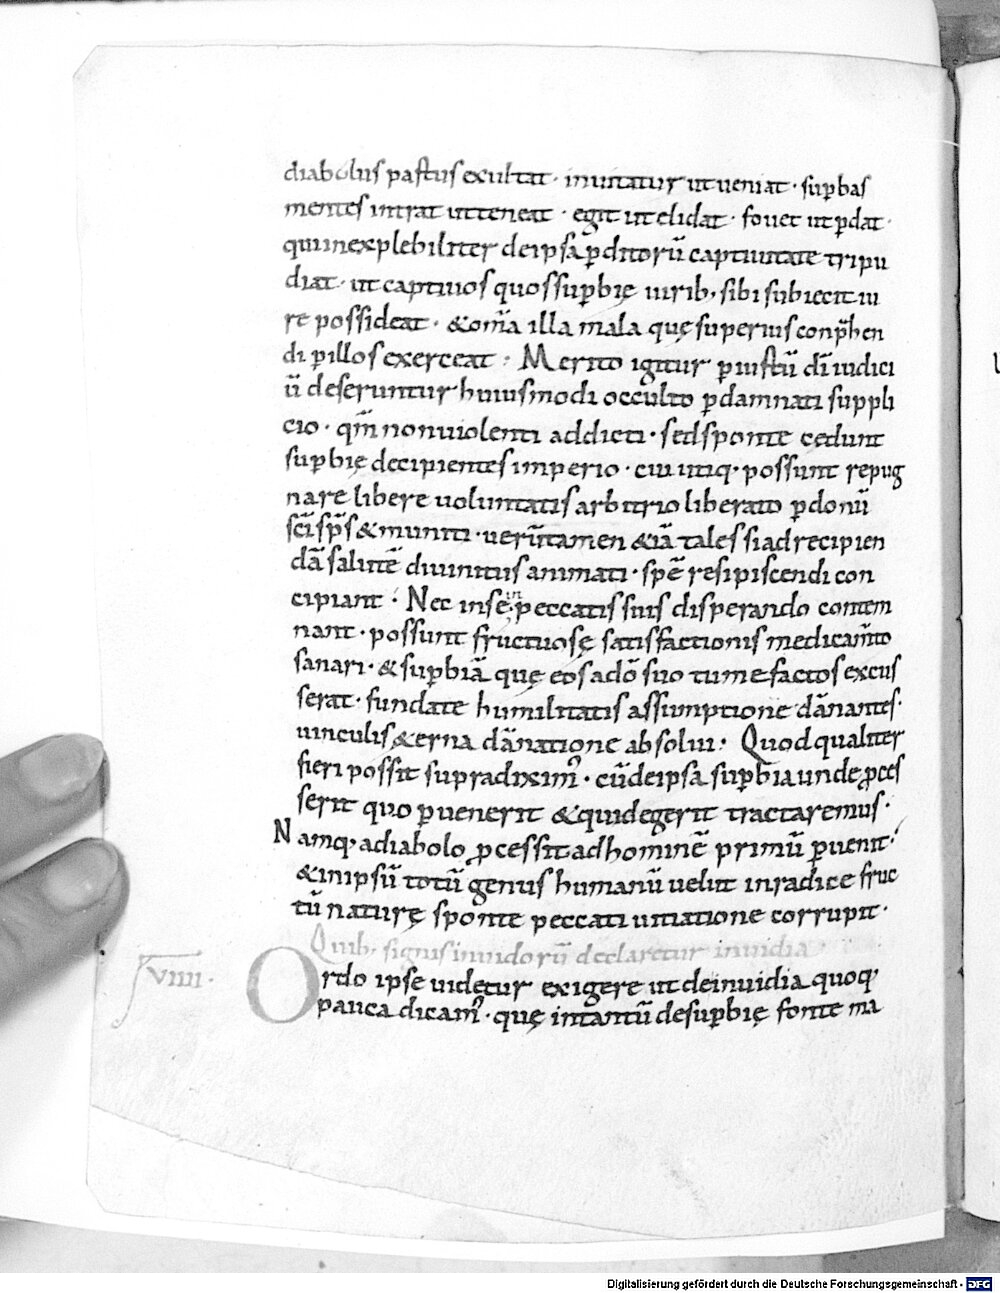 diabolus pastus exultat · inuitatur ut ueniat · sup̱bas
mentes intrat ut teneat · egit ut elidat · fouet ut p̱dat ·
qui inexplebiliter de ipsa p̱ditorū captiuitate tripu
diat · ut captiuos quos sup̱bię uirib, sibi subiecit iu
re possideat · & om̄a illa mala quę superius conp̄hen
di p̱ illos exerceat : Merito igitur p̱ iustū dī iudici
ū deseruntur huiusmodi occulto p̱damnati suppli
cio · qm̄ non uiolenti addicti · sed sponte cedunt
sup̱bię decipientes imperio · cui utiq· possunt repug
nare libere uoluntatis arbitrio liberato p̱ donū
sc̄i sp̄s & muniti · uerūtamen &iā tales si ad recipien
dā salutē diuinitus animati · spē resipiscendi con
cipiant · Nec in se in peccatis suis disperando contem
nant · possunt fructuosę satisfactionis medicam̄to
sanari · & sup̱biā quę eos a dō suo tumefactos excus
serat · fundate humilitatis assumptione dānantes ·
uinculis &erna dānatione absolui : Quod qualiter
fieri possit supra diximꝰ · cū de ipsa sup̱bia unde ꝓces
serit quo p̱uenerit & quid egerit tractaremus ·
Namq· a diabolo ꝓcessit ad hominē primū p̱uenit ·
& in ipsū totū genus humanū uelut in radice fruc
tū naturę sponte peccati uitiatione corrupit ·
Quib, signis inuidorū declaretur inuidia
VIIII ·
Ordo ipse uidetur exigere ut de inuidia quoq·
pauca dicamꝰ · quę in tantū de sup̱bię fonte ma
Digitalisierung gefördert durch die Deutsche Forschungsgemeinschaft - DFG